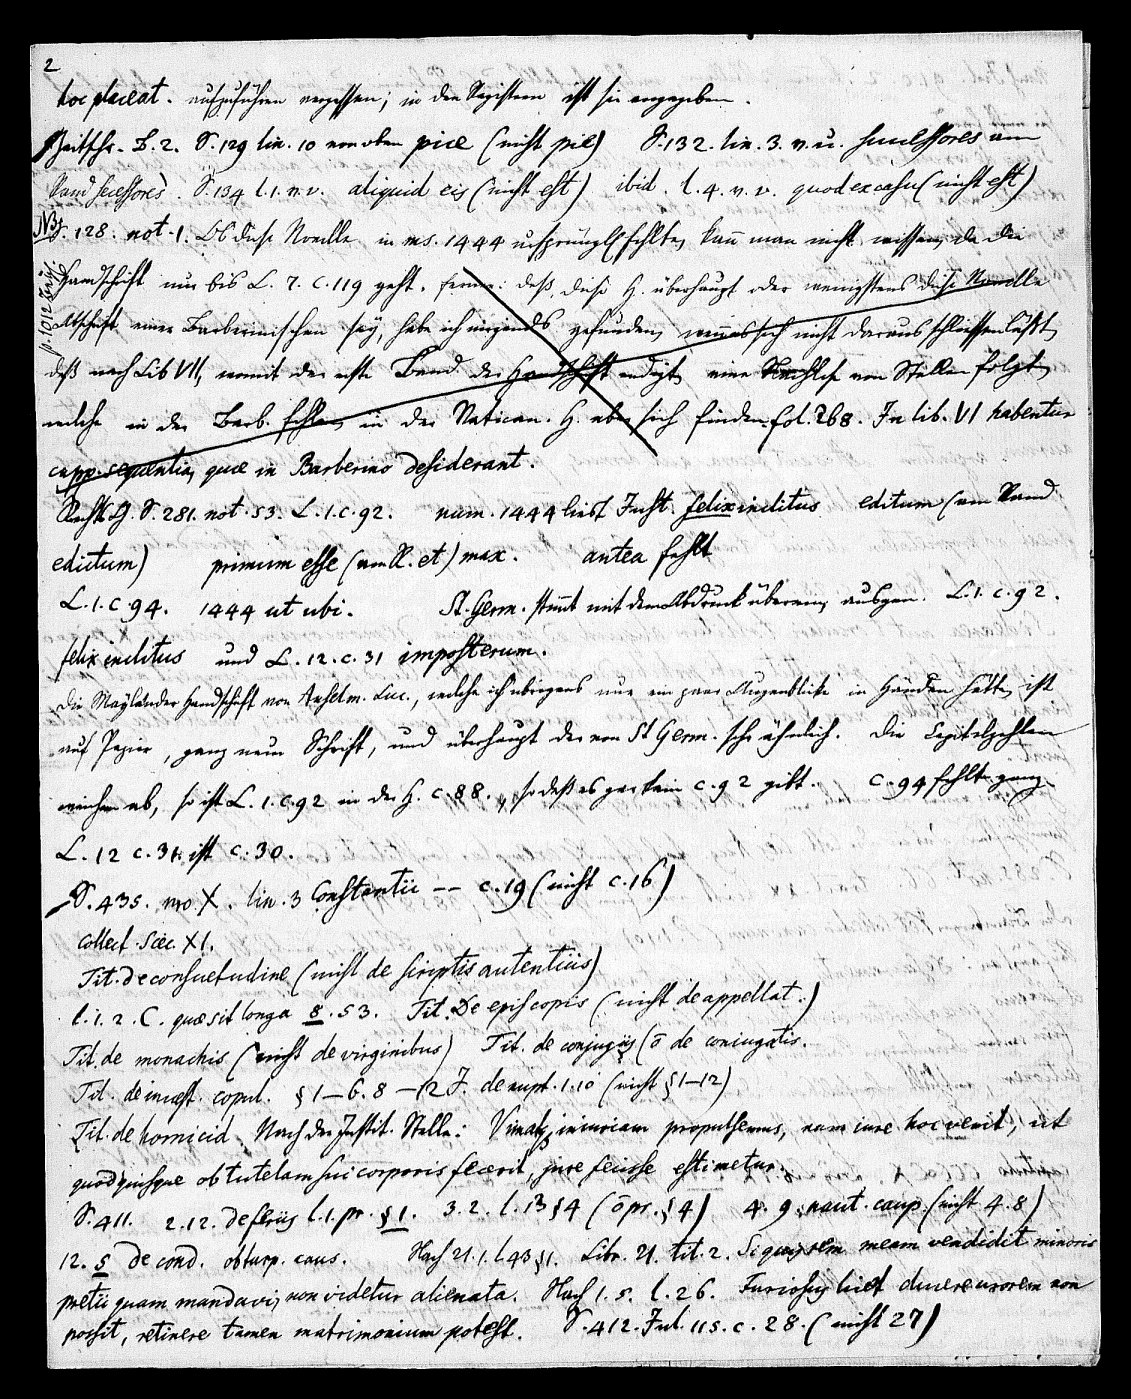 2
hoc placeat. aufzuführen vergessen; in den Registern ist sie angegeben.
Zeitschr. B. 2. S. 129 lin. 10 von oben pice (nicht pie) S. 132. lin. 3. v. u. successores am
Rand secessores. S. 134 l. 1. v. v. aliquid eis (nicht est) ibid. l. 4. v. v. quod ex casu (nicht est)
NB S. 128. not. 1. Ob diese Novelle in ms. 1444 ursprüngl. fehlte, kann man nicht wissen, da die
Handschrift nur bis L. 7. C. 119 geht. ferner: daß, diese H. überhaupt oder wenigstens diese Novelle
Abschrift einer Barberinischen sey, habe ich nirgends gefunden, wenn es sich nicht daraus schliessen läßt,
daß nach Lib VII, womit der erste Band der Handschrift endigt, eine Nachlese von Stellen folgt,
welche in der Barb. fehlen, in der Vatican. H. aber sich finden. fol. 268. In lib. VI habentur
capp. sequentia, quae in Barberino desiderant.
S. 281. not. 53. L. 1. c. 92. num. 1444 liest Just. felix inclitus editum (am Rand
edictum) primum esse (am R. et) max. antea fehlt
L. 1. c. 94. 1444 ut ubi. St. Germ. stimmt mit dem Abdruck überein, ausgen. L. 1. c. 92.
felix inclitus und L. 12. c. 31 imposterum.
Die Mayländer Handschrift von Anselm. Luc., welche ich übrigens nur ein paar Augenblicke in Händen hatte, ist
auf Papier, ganz neue Schrift, und überhaupt der von St Germ. sehr ähnlich. Die Capitelzahlen
weichen ab, so ist L. 1. c. 92 in der H. c. 88., so daß es gar kein c. 92 gibt. c. 94 fehlt ganz.
L. 12 c. 31. ist c. 30.
S. 435. nro X. lin. 3 Constantii -- c. 19 (nicht c. 16)
Collect. Saec. XI.
Tit. de consuetudine (nicht de scriptis autenticis)
l. 1. 2. C. quae sit longa 8. 53. Tit. De episcopis (nicht de appellat.)
Tit. de monachis (nicht de virginibus) Tit. de conjugiis (ō de coniugatis.
Tit. de incest. copul. § 1 – 6. 8 – 12 J. de nupt. 1. 10 (nicht § 1 – 12)
Tit. de homicid. Nach der Instit. Stelle: Vimatq. iniuriam propulsemus, nam iure hoc venit, ut
quod quisque ob tutelam sui corporis fecerit, jure fecisse estimetur.
S. 411. 2. 12. de feriis l. 1. pr. § 1. 3. 2. l. 13 § 4 (ō pr. § 4) 4. 9 naut. caup. (nicht 4. 8)
12. 5 de cond. ob turp. caus. Nach 21. 1. l. 43 § 1. Libr. 21. tit. 2. Si quis rem meam vendidit minoris
pretii quam mandavi, non videtur alienata. Nach 1. 5. l. 26. Furiosus licet ducere uxorem non
possit, retinere tamen matrimonium potest. S. 412. Jul. 115. c. 28. (nicht 27)